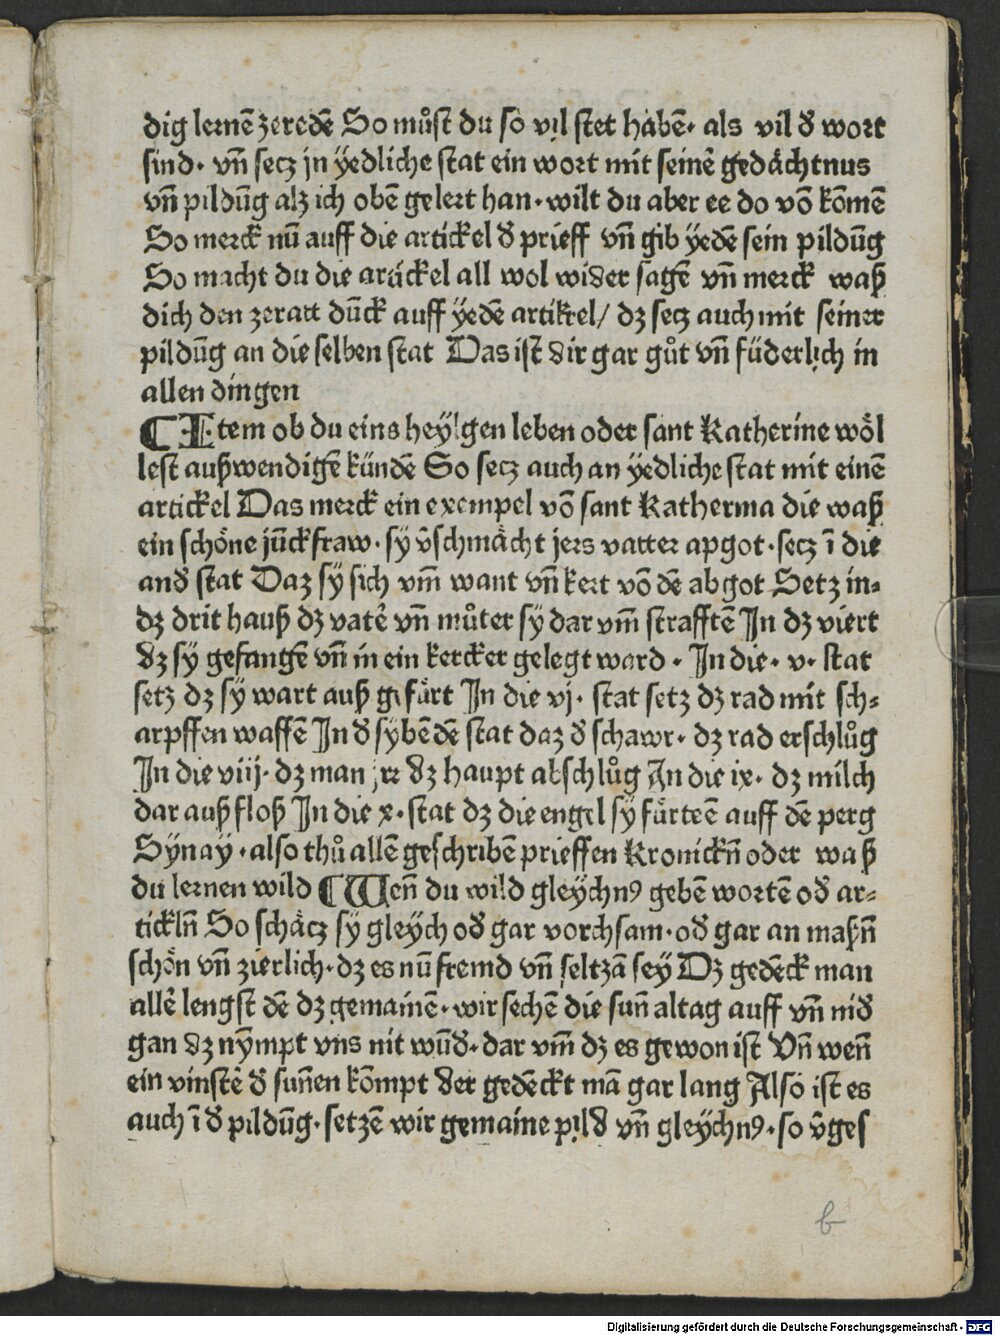 dig lernē zeredē So můst du so vil stet habē· als vil đ wort
sind· vn̄ secz jn ÿedliche stat ein wort mit seinē gedächtnus
vn̄ pildūg alz ich obē gelert han· wilt du aber ee do vō kōmē
So merck nū auff die artickel đ prieff vn̄ gib ÿedē sein pildūg
So macht du die artickel all wol wider sagē vn̄ merck waß
dich den zeratt dūck auff ÿedē artikel/ dz secz auch mit seiner
pildūg an die selben stat Das ist dir gar gůt vn̄ füderlich in
allen dingen
¶ Item ob du eins heÿlgen leben oder sant Katherine wöl
lest außwendigē kündē So secz auch an ÿedliche stat mit einē
artickel Das merck ein exempel vō sant Katherina die waß
ein schöne jūckfraw· sÿ v̄schmächt jers vatter apgot· secz ī die
and̄ stat Daz sÿ sich vm̄ want vn̄ kert vō dē abgot Setz in-
dz drit hauß dz vatē vn̄ můter sÿ dar vm̄ strafftē In dz viert
dz sÿ gefangē vn̄ in ein kercker gelegt ward · In die· v· stat
setz dz sÿ wart auß gefürt In die vj· stat setz dz rad mit sch-
arpffen waffē In đ sÿbēdē stat daz đ schawr· dz rad erschlůg
In die viij· dz man jr dz haupt abschlůg In die ix· dz milch
dar auß floß In die x· stat dz die engel sÿ fürtē auff dē perg
Sÿnaÿ· also thů allē geschribē prieffen Kronickn̄ oder waß
du lernen wild ¶ Wen̄ du wild gleÿchnꝰ gebē wortē ođ ar-
tickln̄ So schäcz sÿ gleÿch ođ gar vorchsam· ođ gar an maßn̄
schön vn̄ zierlich· dz es nū fremd vn̄ seltzā seÿ Dz gedēck man
allē lengst dē dz gemainē· wir sechē die sun̄ altag auff vn̄ nid̄
gan dz nÿmpt vns nit wūd̄· dar vm̄ dz es gewon ist Vn̄ wen̄
ein vinstē đ sun̄en kōmpt der gedēckt mā gar lang Also ist es
auch ī đ pildūg· setzē wir gemaine pild vn̄ gleÿchnꝰ· so v̄ges
b
Digitalisierung gefördert durch die Deutsche Forschungsgemeinschaft - DFG